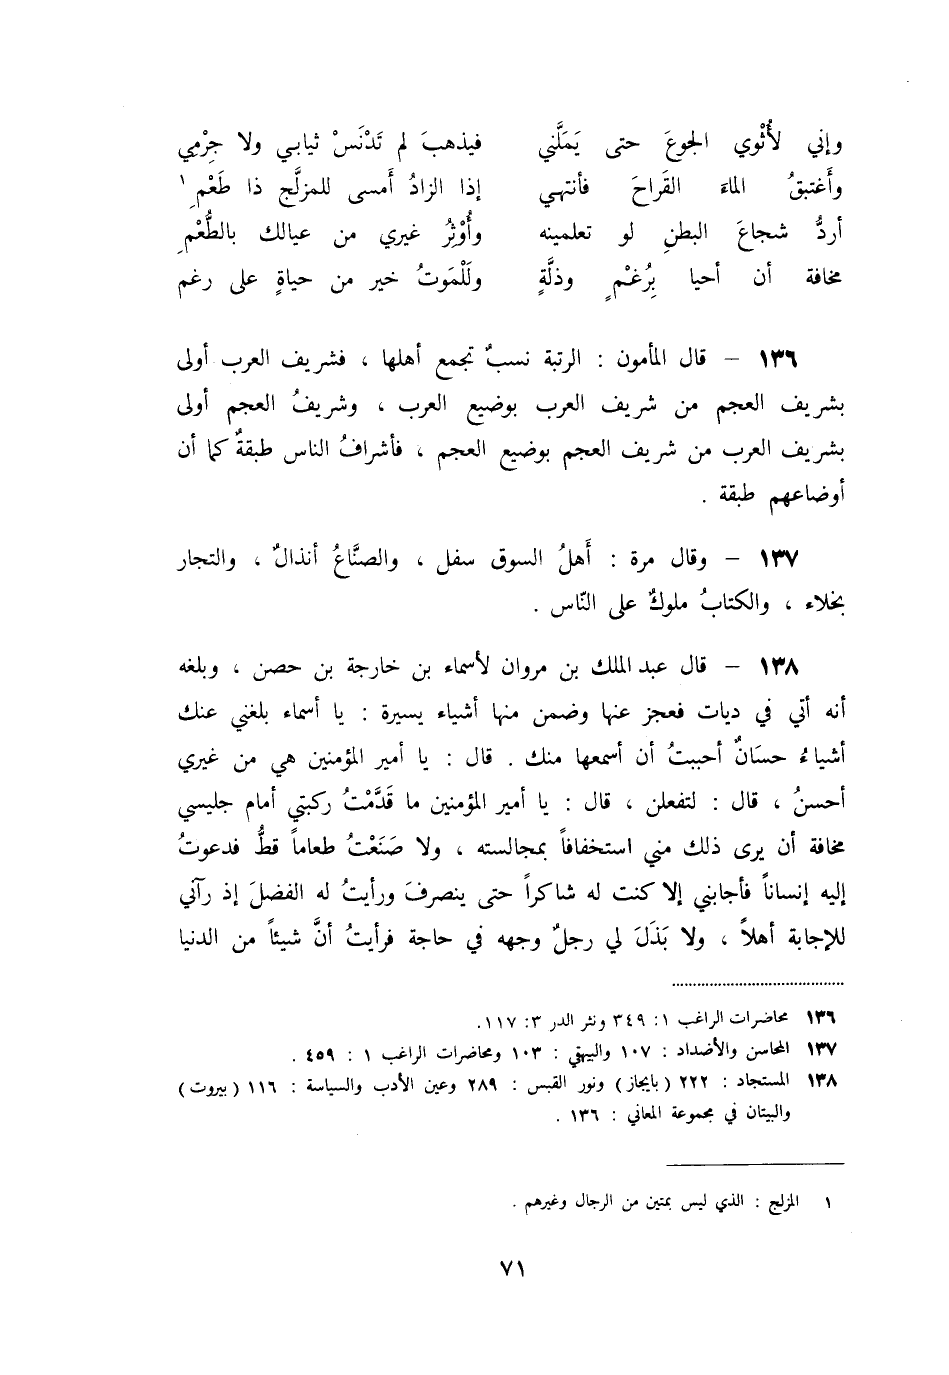 وإني لأُثْوي الجوعَ حتى يَمَلَّني فيذهبَ لم تَدْنَسْ ثيابي ولا جِرْمِي
وأَغتبقُ الماءَ القَراحَ فأنتهي إذا الزادُ أَمسى للمزلَّج ذا طَعْمِ ١
أردُّ شجاعَ البطنِ لو تعلمينه وأُوْثِرُ غيري من عيالك بالطُّعْمِ
مخافة أن أحيا بِرُغمٍ وذلَّةٍ ولَلْمَوتُ خير من حياةٍ على رغم
١٣٦ – قال المأمون : الرتبة نسبٌ تجمع أهلها ، فشريف العرب أولى
بشريف العجم من شريف العرب بوضيع العرب ، وشريفُ العجم أولى
بشريف العرب من شريف العجم بوضيع العجم ، فأشرافُ الناس طبقةٌ كما أن
أوضاعهم طبقة .
١٣٧ – وقال مرة : أَهلُ السوق سفل ، والصنَّاعُ أنذالٌ ، والتجار
بخلاء ، والكتابُ ملوكٌ على النّاس .
١٣٨ – قال عبد الملك بن مروان لأسماء بن خارجة بن حصن ، وبلغه
أنه أتي في ديات فعجز عنها وضمن منها أشياء يسيرة : يا أسماء بلغني عنك
أشياءُ حسَانٌ أحببتُ أن أسمعها منك . قال : يا أمير المؤمنين هي من غيري
أحسنُ ، قال : لتفعلن ، قال : يا أمير المؤمنين ما قَدَّمْتُ ركبتي أمام جليسي
مخافة أن يرى ذلك مني استخفافاً بمجالسته ، ولا صَنَعْتُ طعاماً قطُّ فدعوتُ
إليه إنساناً فأجابني إلا كنت له شاكراً حتى ينصرفَ ورأيتُ له الفضلَ إذ رآني
للإجابة أهلاً ، ولا بَذَلَ لي رجلٌ وجهه في حاجة فرأيتُ أنَّ شيئاً من الدنيا
١٣٦ محاضرات الراغب ١ : ٣٤٩ ونثر الدر ٣ : ١١٧.
١٣٧ المحاسن والأضداد : ١٠٧ والبيهقي : ١٠٣ ومحاضرات الراغب ١ : ٤٥٩ .
١٣٨ المستجاد : ٢٢٢ ( بايجاز ) ونور القبس : ٢٨٩ وعين الأدب والسياسة : ١١٦ ( بيروت )
والبيتان في مجموعة المعاني : ١٣٦ .
١ المزلج : الذي ليس بمتين من الرجال وغيرهم .
٧١